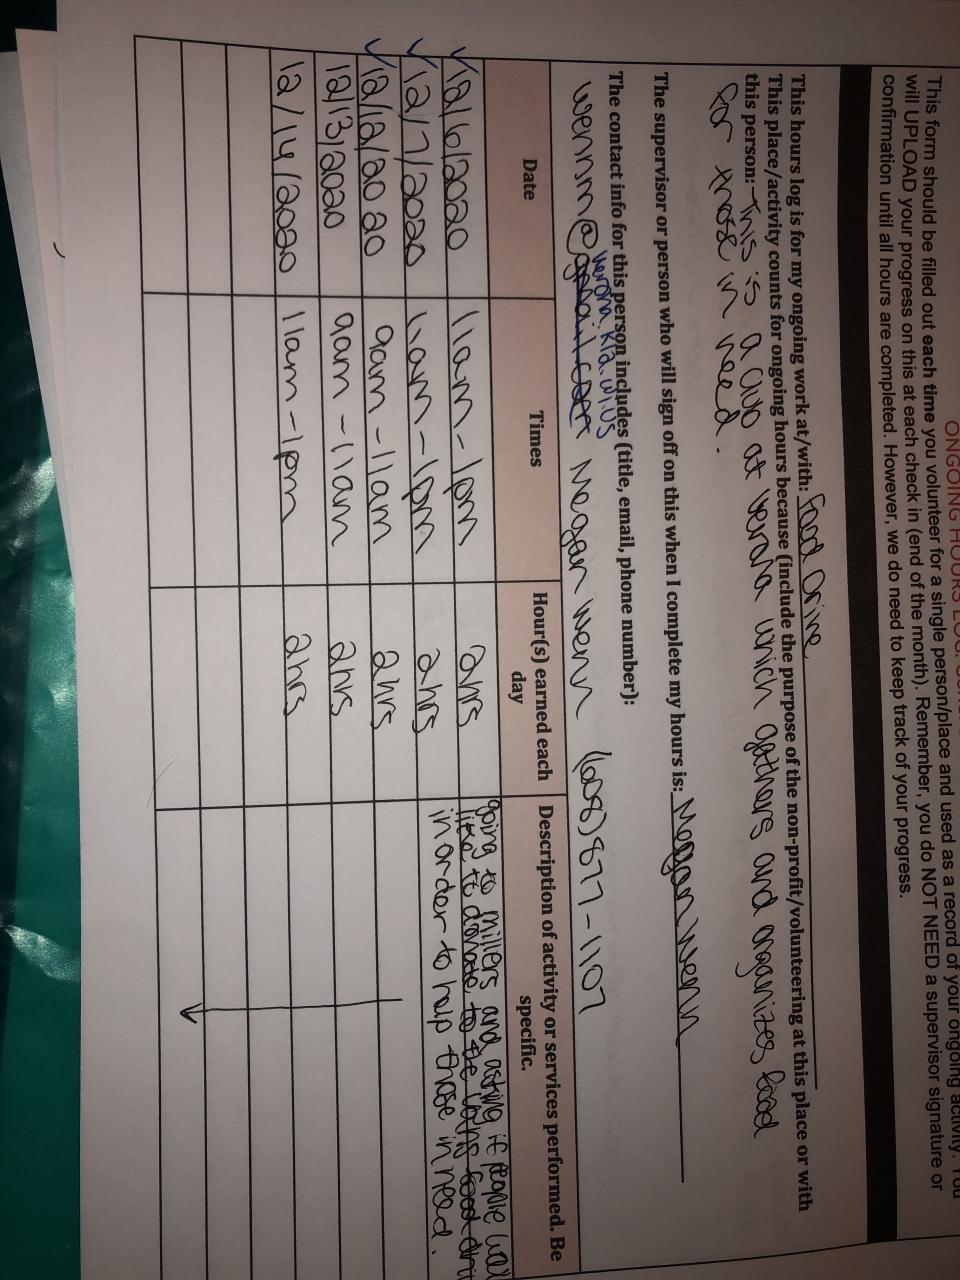 ONGOING HOURS LOG:
This form should be filled out each time you volunteer for a single person/place and used as a record of your ongoing activity. You
will UPLOAD your progress on this at each check in (end of the month). Remember, you do NOT NEED a supervisor signature or
confirmation until all hours are completed. However, we do need to keep track of your progress.
This hours log is for my ongoing work at/with: Food Drive
This place/activity counts for ongoing hours because (include the purpose of the non-profit/volunteering at this place or with
this person: This is a club at Verona which gathers and organizes food
for those in need.
The supervisor or person who will sign off on this when I complete my hours is: Megan Wenn
The contact info for this person includes (title, email, phone number):
verona.k12.wi.us
wennm@gmail.com Megan Wenn (608) 877-1107
Date Times Hour(s) earned each day Description of activity or services performed. Be specific.
✓ 12/6/2020 11am-1pm 2hrs going to millers and asking if people would
like to donate to the food
✓ 12/7/2020 11am-1pm 2hrs in order to help those in need.
✓ 12/12/2020 9am-11am 2hrs
12/13/2020 9am-11am 2hrs
12/14/2020 11am-1pm 2hrs